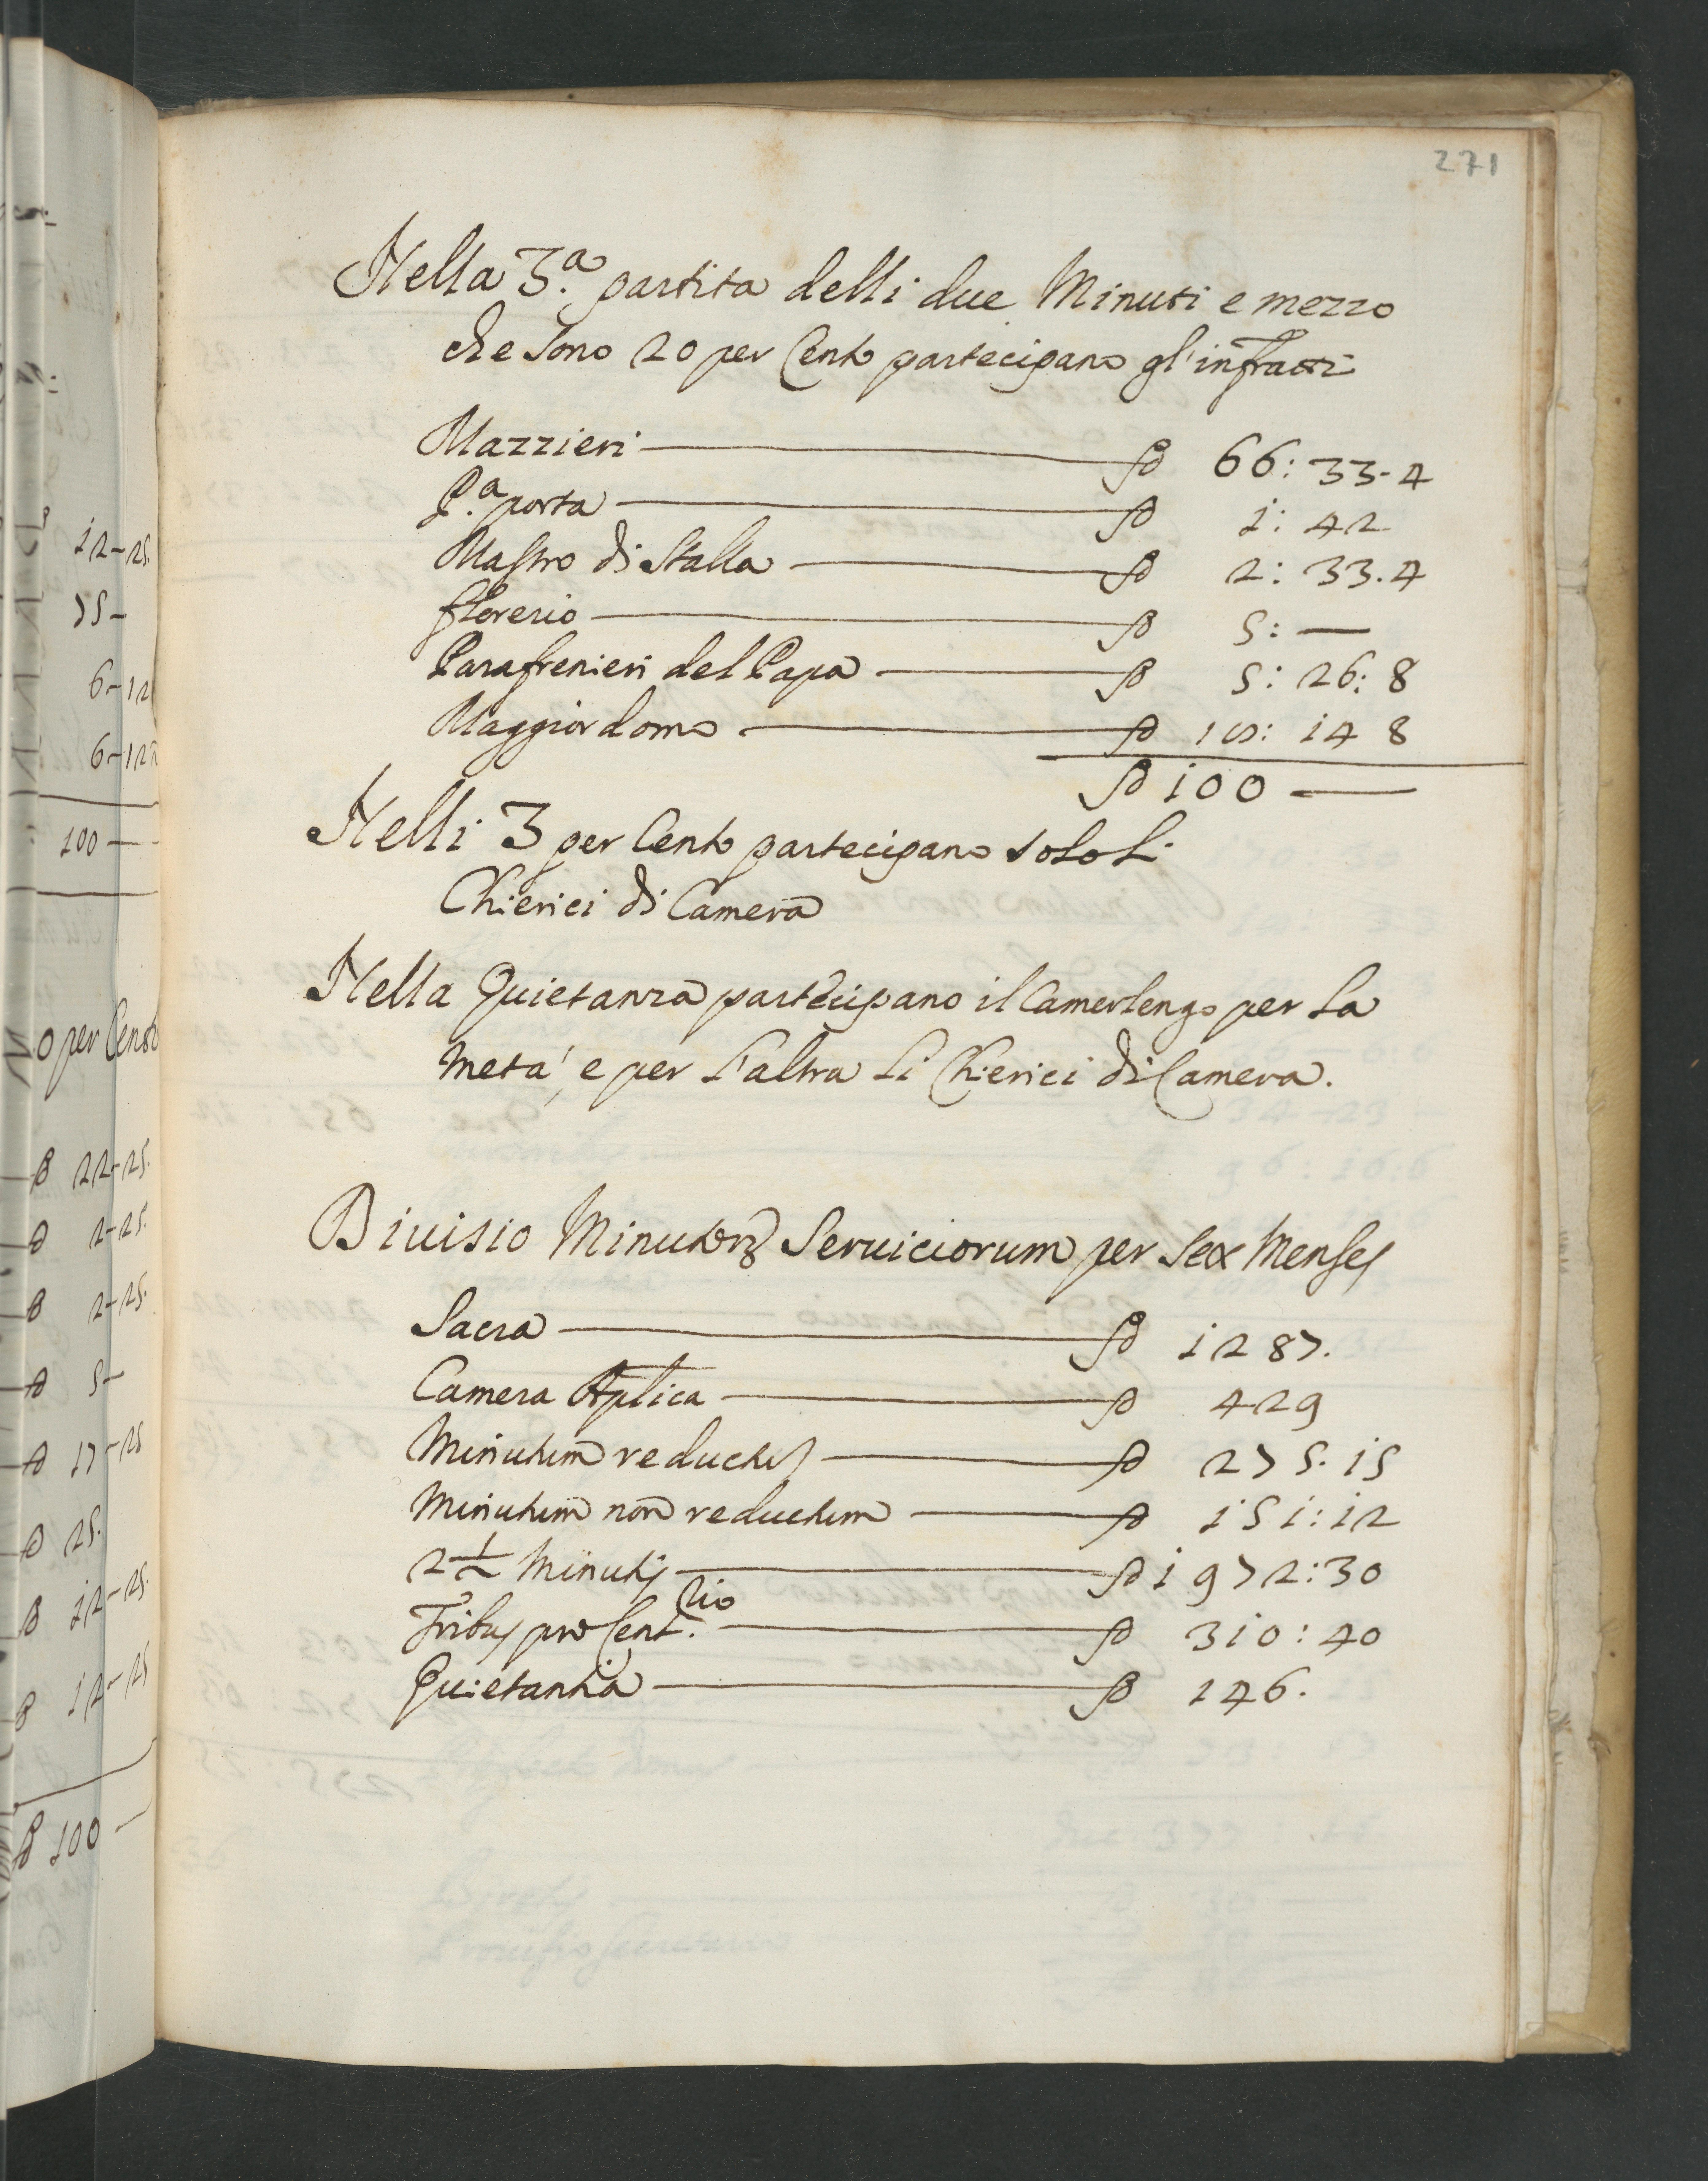 271
Nella 3.a partita delli due Minuti e mezzo
che sono 20 per Cento partecipano gl'infratti
Mazzieri — ∯ 66: 33-4
P.a porta — ∯ 1: 42
Mastro di Stalla — ∯ 2: 33.4
florerio — ∯ 5: —
Parafrenieri del Papa — ∯ 5: 26: 8
Maggiordomo — ∯ 19: 14 8
∯ 100 —
Nelli 3 per Cento partecipano solo li
Chierici di Camera
Nella Quietanza partecipano il Camerlengo per la
metá, e per l'altra li Chierici di Camera.
Diuisio Minutorꝝ Seruiciorum per sex menses
Sacra — ∯ 1287.
Camera Aplica — ∯ 429
Minutum reductũ — ∯ 275. 15
Minutum non reductum — ∯ 151: 12
2 1/2 Minutis — ∯ 1972: 30
Tribus pro Cent.rio — ∯ 310: 40
Quietantia — ∯ 146.
12-25.
75-
6-12
6-12
100 —
0 per Cento
22-25.
2-25.
2-25.
5-
17-25
25.
12-25.
12-25
100 —